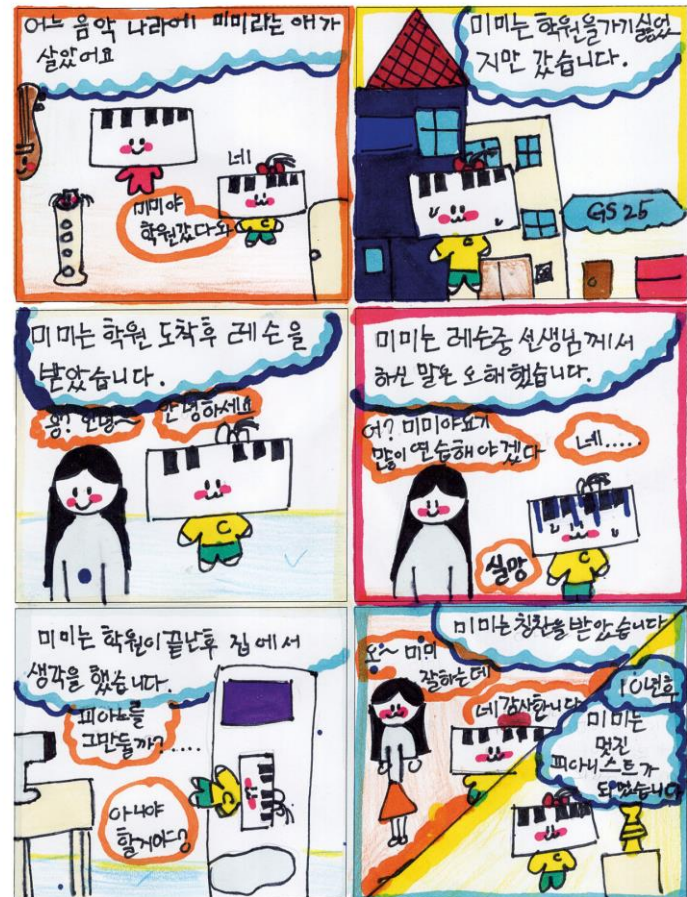 어느 음악 나라에 미미라는 애가
살았어요
네
미미야
학원갔다와
미미는 학원을가기싫었
지만 갔습니다.
GS25
미미는 학원 도착후 레슨을
받았습니다.
응? 안녕~
안녕하세요
미미는 레슨중 선생님께서
하신 말을 오해했습니다.
어? 미미야요기
많이연습해야겠다
네.....
실망
미미는 학원이끝난후 집에서
생각을 했습니다.
피아노를
그만둘까?.....
아니야
할게야
미미는칭찬을받았습니다
오~ 미미
잘하는데
네감사합니다
10년후
미미는
멋진
피아니스트가
되었습니다